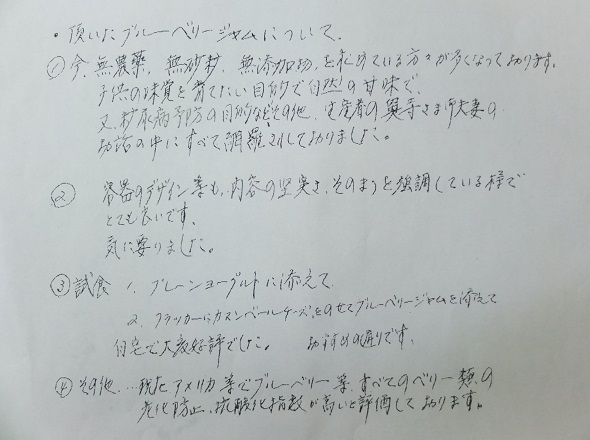 ・頂いたブルーベリージャムについて.
① 今、無農薬、無砂糖、無添加物、を求めている方々が多くなっております。
子供の味覚を育てたい目的で自然の甘味で、
又、糖尿病予防の目的などその他、生産者の奥寺さま御夫妻の
お話の中にすべて網羅されておりました。
② 容器のデザイン等も、内容の堅実さ、そのものを強調している様で
とても良いです。
気に要りました。
③ 試食 1. プレーンヨーグルトに添えて.
2. クラッカーにカマンベールチーズをのせてブルーベリージャムを添えて
自宅で大変好評でした。 お勧めの通りです。
④ その他、…現在アメリカ等でブルーベリー等、すべてのベリー類の
老化防止、抗酸化指数が高いと評価しております。